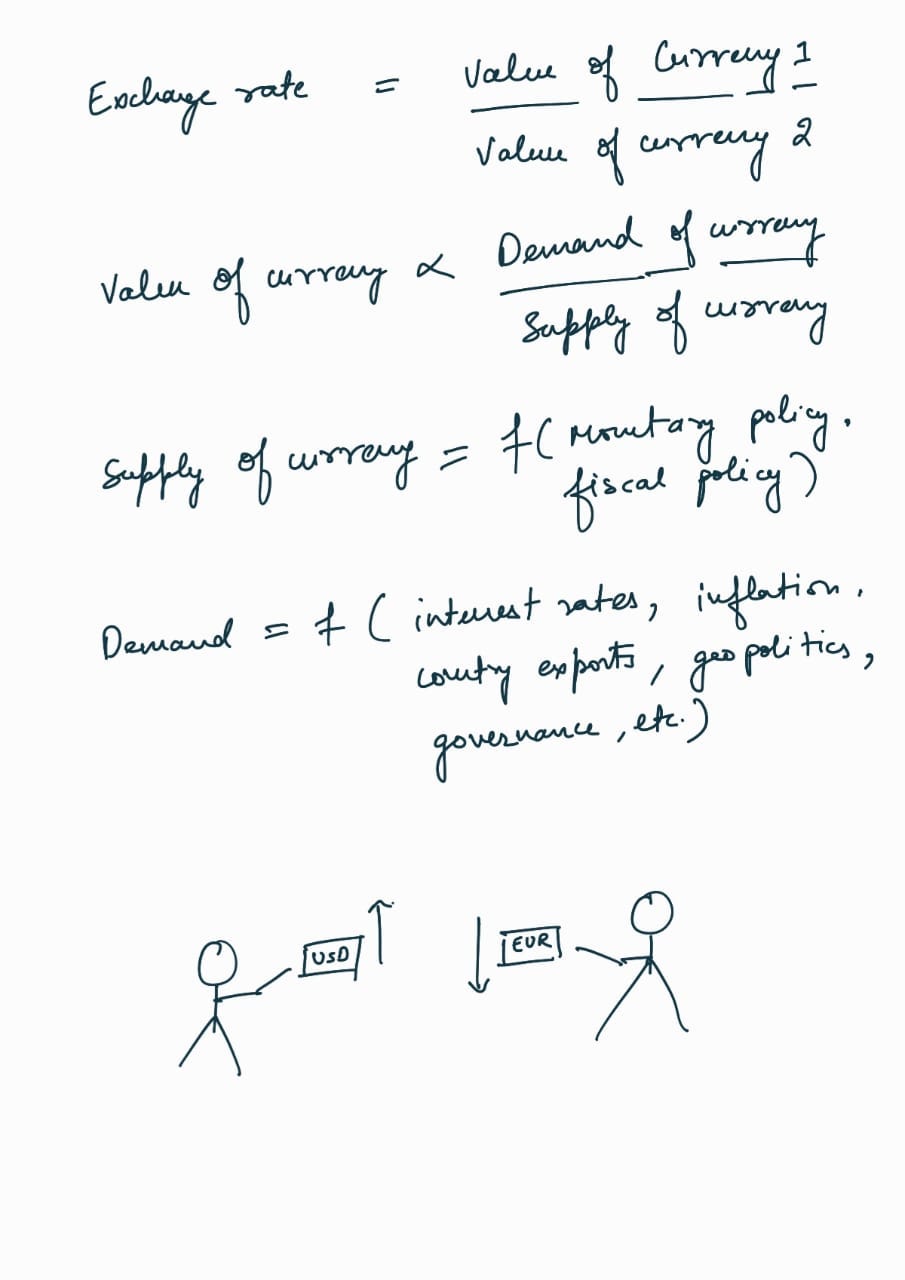 Exchange rate = Value of Currency 1
Value of currency 2
Value of currency ∝ Demand of currency
Supply of currency
Supply of currency = f ( Monetary policy,
fiscal policy )
Demand = f ( interest rates, inflation,
country exports, geopolitics,
governance, etc.)
USD ↑ ↓ EUR